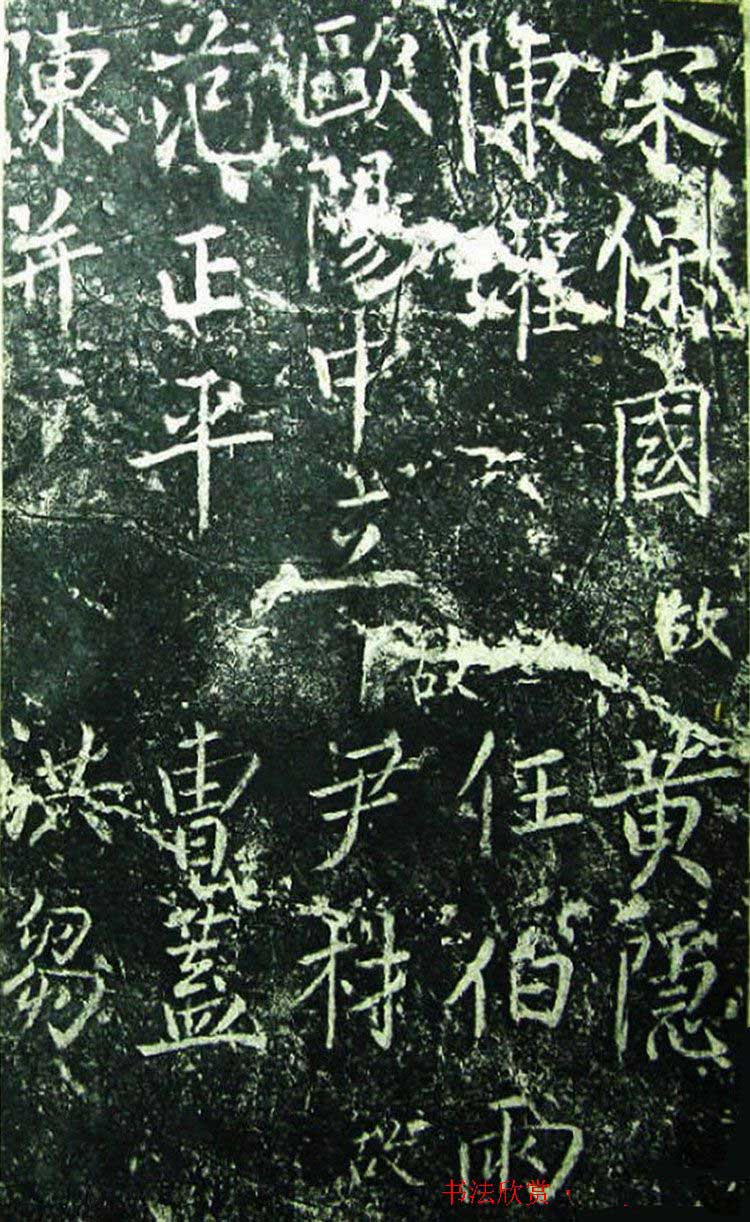 宋保國 故黄隱
陳瓘 任伯雨
歐陽中立 故尹材 故
范正平 曹蓋
陳并 洪芻
书法欣赏·